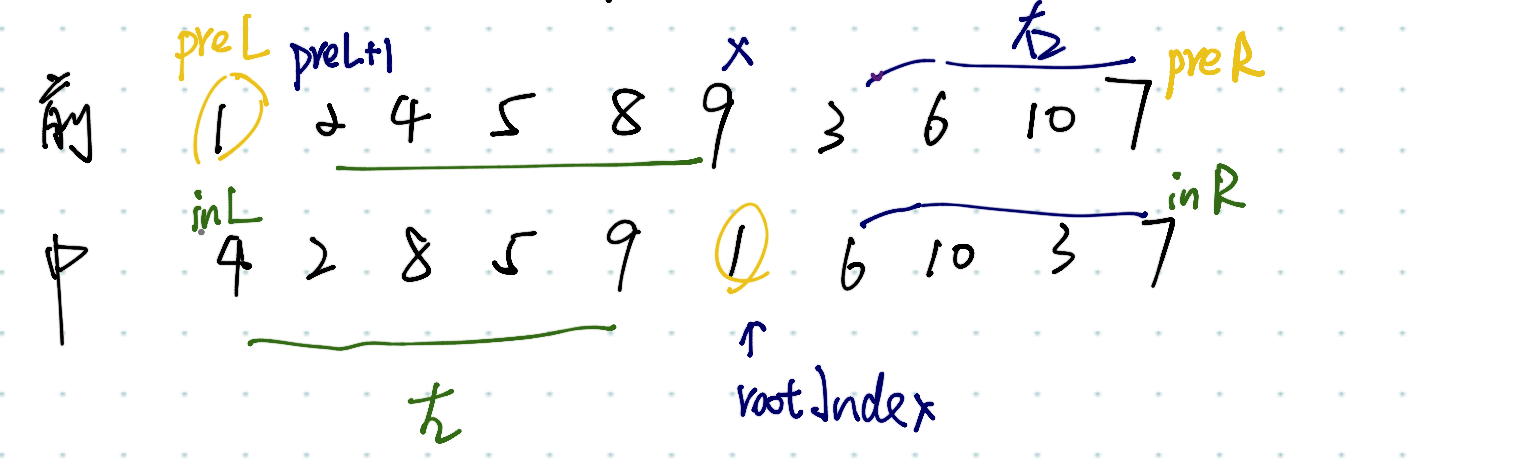 preL preL+1 x 右 preR
前 1 2 4 5 8 9 3 6 10 7
inL inR
中 4 2 8 5 9 1 6 10 3 7
↑
左 rootIndex